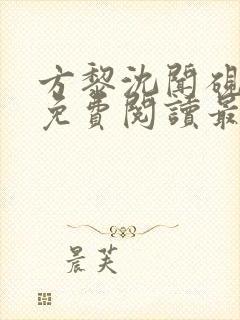 方黎沈聞硯
免費閱讀最
晨芙